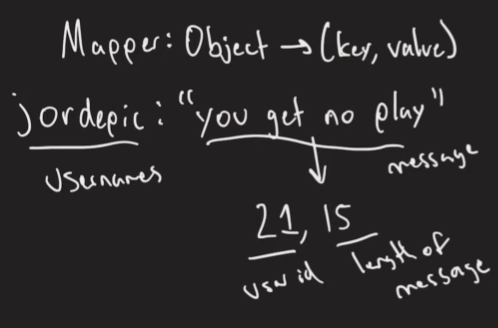 Mapper: Object → (key, value)
jordepic: "you get no play"
usernames
message
21, 15
user id
length of
message